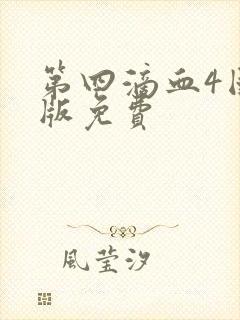 第四滴血4
版免费
风莹汐